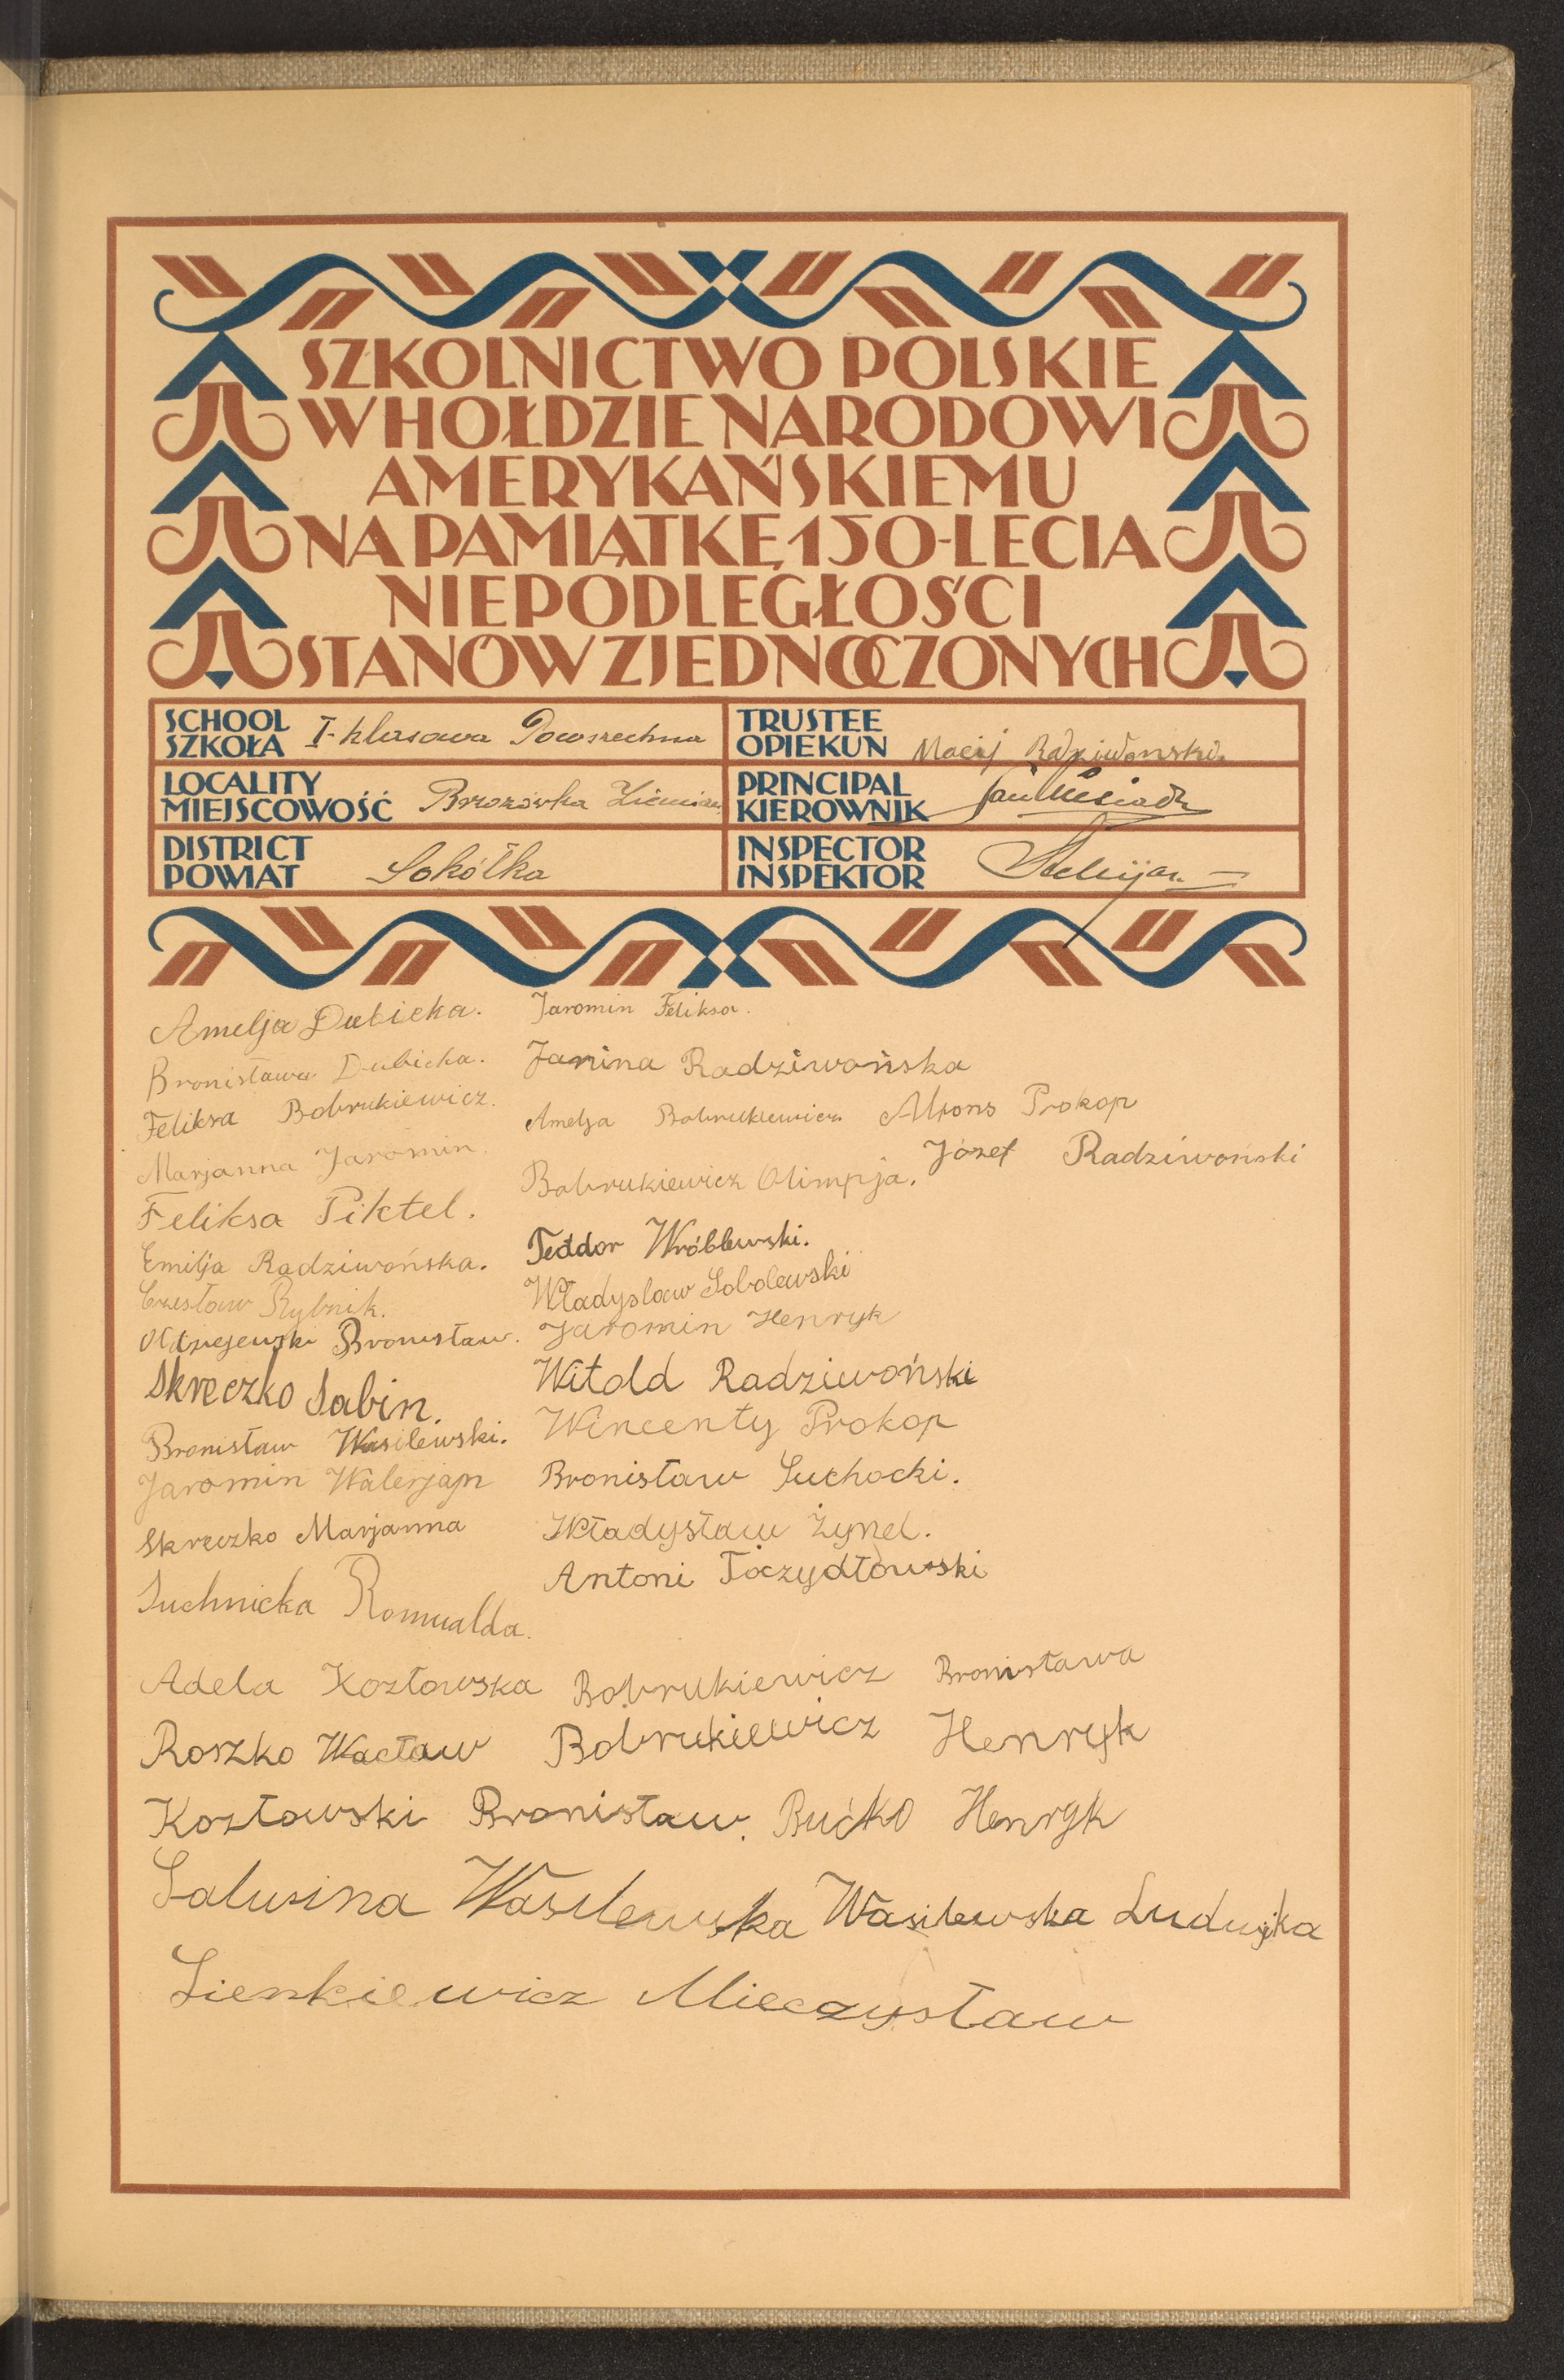 SZKOLNICTWO POLSKIE
W HOŁDZIE NARODOWI
AMERYKAŃSKIEMU
NA PAMIĄTKĘ 150-LECIA
NIEPODLEGŁOŚCI
STANÓW ZJEDNOCZONYCH
SCHOOL
SZKOŁA I-klasowa Powszechna
LOCALITY
MIEJSCOWOŚĆ Brzozówka Ziemiań.
DISTRICT
POWIAT Sokółka
TRUSTEE
OPIEKUN Maciej Radziwonski.
PRINCIPAL
KIEROWNIK Jan
INSPECTOR
INSPEKTOR
Amelja Dubicka.
Bronisława Dubicka.
Feliksa Bobrukiewicz.
Marjanna Jaromin.
Feliksa Piktel.
Emilja Radziwońska.
Czesław Rybnik.
Bronisław.
Skreczko Sabin.
Bronisław Wasilewski.
Jaromin Walerjan
Skreczko Marjanna
Suchnicka Romualda.
Jaromin Feliksa.
Janina Radziwońska
Amelja Bobrukiewicz Alfons Prokop
Józef Radziwoński
Bobrukiewicz Olimpja.
Teodor Wróblewski.
Władyslaw Sobolewski
Jaromin Henryk
Witold Radziwoński
Wincenty Prokop
Bronisław Suchocki.
Władysław Żynel.
Antoni Toczydłowski
Adela Kozłowska Bobrukiewicz Bronisława
Roszko Wacław Bobrukiewicz Henryk
Kozłowski Bronisław. Bućko Henryk
Salusina Wasilewska Wasilewska Ludwika
Sienkiewicz Mieczysław